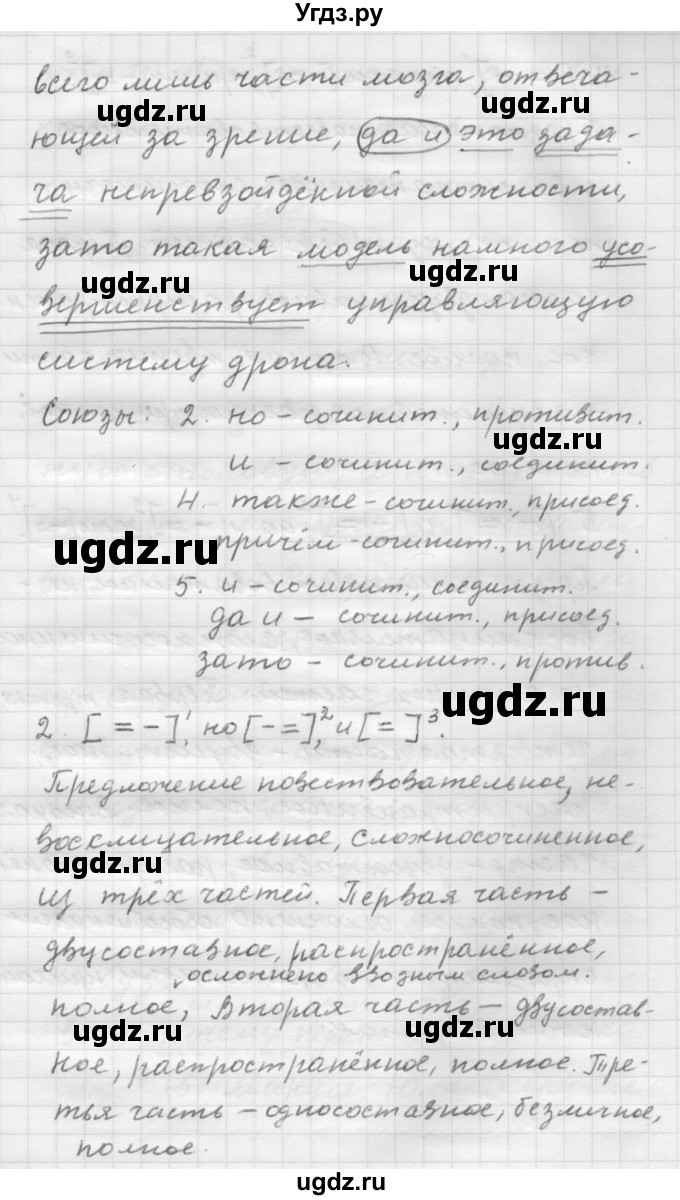 Угдз.ру
всего лишь части мозга, отвеча-
ющей за зрение, да и это зада-
ча непревзойдённой сложности,
зато такая модель намного усо-
вершенствует управляющую
систему дрона.
Союзы: 2. но - сочинит., противит.
и - сочинит., соединит.
4. также - сочинит., присоед.
причём - сочинит., присоед.
5. и - сочинит., соединит.
да и - сочинит., присоед.
зато - сочинит., против.
2. [ = - ]¹, но [ - = ]², и [ = ]³.
Предложение повествовательное, не-
восклицательное, сложносочиненное,
из трёх частей. Первая часть -
двусоставное, распространённое,
, осложнено вводным словом.
полное, Вторая часть - двусостав-
ное, распространённое, полное. Тре-
тья часть - односоставное, безличное,
полное.
ugdz.ru
ugdz.ru
ugdz.ru
ugdz.ru
ugdz.ru
ugdz.ru
ugdz.ru
ugdz.ru
ugdz.ru
ugdz.ru
ugdz.ru
ugdz.ru
ugdz.ru